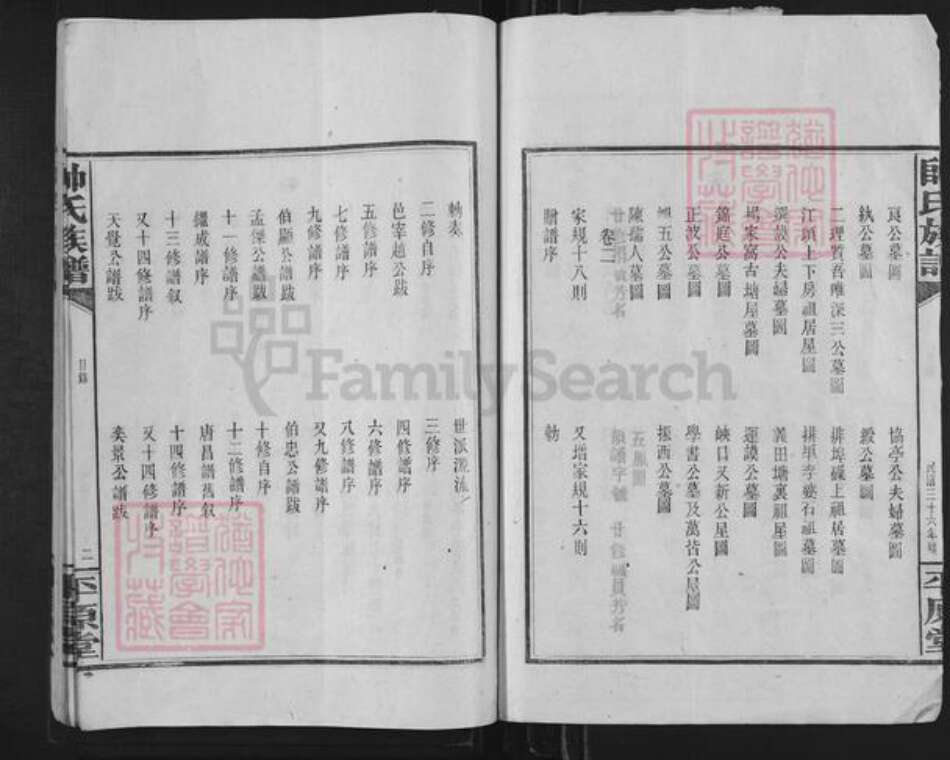 帥氏族譜
民國三十六年
平原堂
良公墓圖
協亭公夫婦墓圖
紈公墓圖
毅公墓圖
二理質吾唯深三公墓圖
排埠磜上祖居墓圖
江頭上下房祖居屋圖
排單李婆石祖墓圖
漢謨公夫婦墓圖
義田塘裏祖屋圖
塲家窩古塘屋墓圖
運謨公墓圖
錦庭公墓圖
峽口又新公屋圖
正波公墓圖
學書公墓及萬皆公屋圖
五公墓圖
振西公墓圖
陳瑞人墓圖
五服圖
芳名
領譜字號
卷二
家規十八則
又增家規十六則
贈譜序
勅
勅奏
世派源流
二修自序
三修序
邑宰趙公跋
四修譜序
五修譜序
六修譜序
七修譜序
八修譜序
九修譜序
又九修譜序
伯顯公譜跋
伯忠公譜跋
孟傑公譜跋
十修自序
十一修譜序
十二修譜序
繼成譜序
唐昌譜舊敘
十三修譜敘
十四修譜序
又十四修譜序
又十四修譜序
天覺公譜跋
奕景公譜跋
帥氏族譜
目錄
二
平原堂
FamilySearch